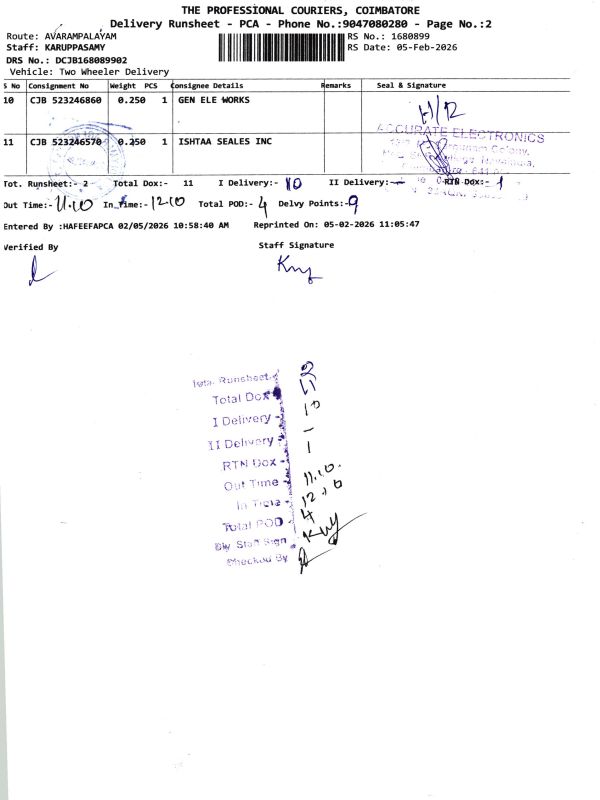 THE PROFESSIONAL COURIERS, COIMBATORE
Delivery Runsheet - PCA - Phone No.:9047080280 - Page No.:2
Route: AVARAMPALAYAM
RS No.: 1680899
Staff: KARUPPASAMY
RS Date: 05-Feb-2026
DRS No.: DCJB168089902
Vehicle: Two Wheeler Delivery
S No Consignment No Weight PCS Consignee Details Remarks Seal & Signature
10 CJB 523246860 0.250 1 GEN ELE WORKS
ACCURATE ELECTRONICS
11 CJB 523246570 0.250 1 ISHTAA SEALES INC
Tot. Runsheet:- 2 Total Dox:- 11 I Delivery:- 10 II Delivery:- — RTN Dox:- 1
Out Time:- 11.10 In Time:- 12.10 Total POD:- 4 Delvy Points:- 9
Entered By :HAFEEFAPCA 02/05/2026 10:58:40 AM Reprinted On: 05-02-2026 11:05:47
Verified By Staff Signature
Total Runsheet - 2
Total Dox - 11
I Delivery - 10
II Delivery - –
RTN Dox - 1
Out Time - 11.10.
In Time - 12.10
Total POD - 4
Dly Staff Sign
Checked By